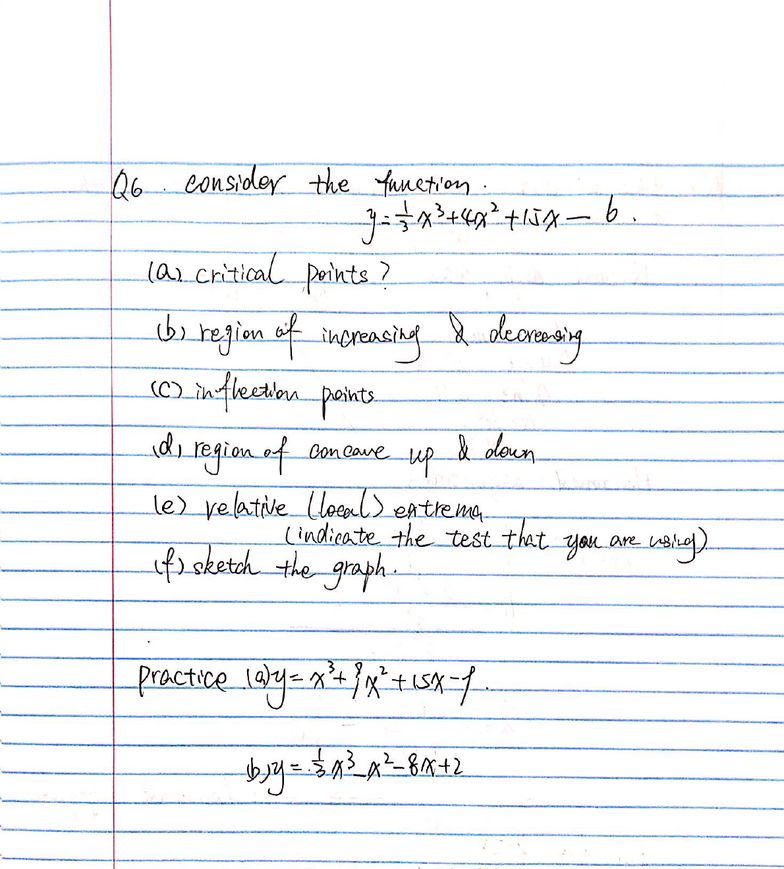 Q6. consider the function.
y = 1/3 x³ + 4x² + 15x - 6.
(a) critical points?
(b) region of increasing & decreasing
(c) inflection points
(d) region of concave up & down
(e) relative (local) extrema
(indicate the test that you are using)
(f) sketch the graph.
practice (a) y = x³ + 9x² + 15x - 9.
(b) y = 1/3 x³ - x² - 8x + 2